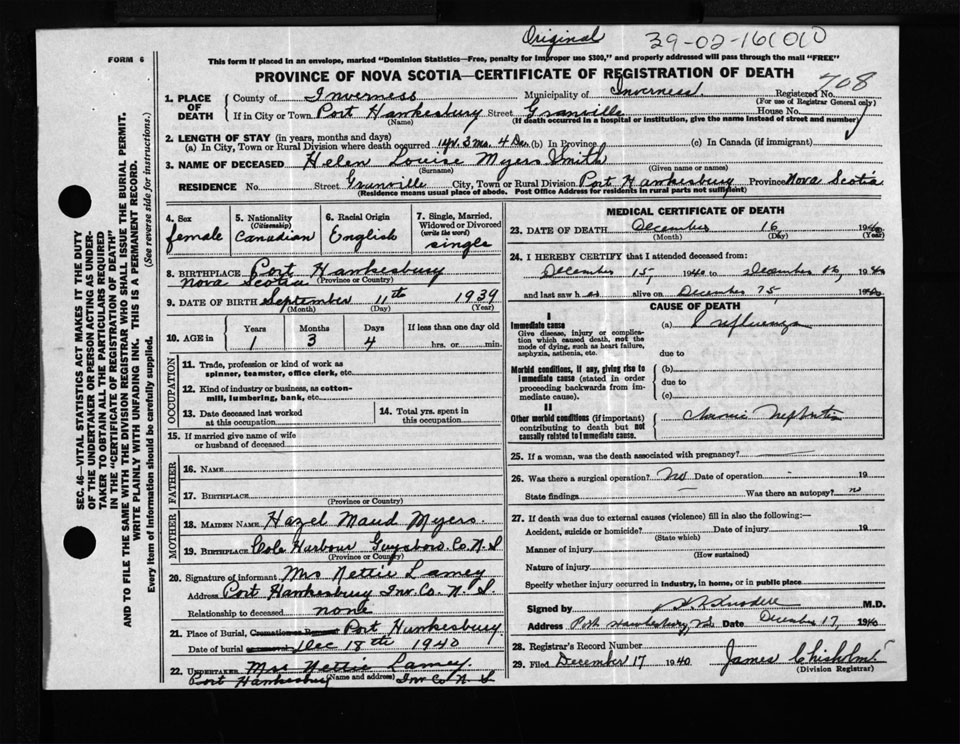 Original 39-02-161010
FORM 6
This form if placed in an envelope, marked "Dominion Statistics—Free, penalty for improper use $300," and properly addressed will pass through the mail "FREE"
PROVINCE OF NOVA SCOTIA—CERTIFICATE OF REGISTRATION OF DEATH
708
1. PLACE OF DEATH
County of Inverness Municipality of Inverness Registered No.
(For use of Registrar General only)
If in City or Town Port Hawkesbury Street Granville House No.
(Name) (If death occurred in a hospital or institution, give the name instead of street and number)
2. LENGTH OF STAY (in years, months and days)
(a) In City, Town or Rural Division where death occurred 1 yr. 3 mo. 4 Das. (b) In Province (c) In Canada (if immigrant)
3. NAME OF DECEASED Helen Louise Myers Smith
(Surname) (Given name or names)
RESIDENCE No. Street Granville City, Town or Rural Division Port Hawkesbury Province Nova Scotia
(Residence means usual place of abode. Post Office Address for residents in rural parts not sufficient)
4. Sex
female
5. Nationality
(Citizenship)
Canadian
6. Racial Origin
English
7. Single, Married, Widowed or Divorced
(write the word)
single
8. BIRTHPLACE Port Hawkesbury
Nova Scotia (Province or Country)
9. DATE OF BIRTH September 11th 1939
(Month) (Day) (Year)
10. AGE in
Years Months Days If less than one day old
1 3 4 hrs. or min.
OCCUPATION
11. Trade, profession or kind of work as
spinner, teamster, office clerk, etc.
12. Kind of industry or business, as cotton-
mill, lumbering, bank, etc.
13. Date deceased last worked
at this occupation
14. Total yrs. spent in
this occupation
15. If married give name of wife
or husband of deceased
FATHER
16. NAME
17. BIRTHPLACE
(Province or Country)
MOTHER
18. MAIDEN NAME Hazel Maud Myers.
19. BIRTHPLACE Cole Harbour Guysboro Co. N. S
(Province or Country)
20. Signature of informant Mrs Nettie Lamey
Address Port Hawkesbury Inv. Co. N. S.
Relationship to deceased none
21. Place of Burial, Cremation or Removal Port Hawkesbury
Date of burial Dec 18th 1940
22. UNDERTAKER Mrs Nettie Lamey.
(Name and address)
Port Hawkesbury Inv Co N S
MEDICAL CERTIFICATE OF DEATH
23. DATE OF DEATH December 16 1940
(Month) (Day) (Year)
24. I HEREBY CERTIFY that I attended deceased from:
December 15, 1940 to December 16, 1940
and last saw h er alive on December 15, 1940
CAUSE OF DEATH
I
Immediate cause
Give disease, injury or complica-
tion which caused death, not the
mode of dying, such as heart failure,
asphyxia, asthenia, etc.
(a) Influenza
due to
Morbid conditions, if any, giving rise to
immediate cause (stated in order
proceeding backwards from im-
mediate cause).
(b)
due to
(c)
II
Other morbid conditions (if important)
contributing to death but not
causally related to immediate cause.
Chronic Nephritis
25. If a woman, was the death associated with pregnancy?
26. Was there a surgical operation? No Date of operation 19
State findings Was there an autopsy? n
27. If death was due to external causes (violence) fill in also the following:—
Accident, suicide or homicide? Date of injury 19
(State which)
Manner of injury
(How sustained)
Nature of injury
Specify whether injury occurred in industry, in home, or in public place
Signed by M.D.
Address Port Hawkesbury, N.S. Date December 17, 1940
28. Registrar's Record Number
29. Filed December 17 1940 James Chisholm
(Division Registrar)
SEC. 46—VITAL STATISTICS ACT MAKES IT THE DUTY
OF THE UNDERTAKER OR PERSON ACTING AS UNDER-
TAKER TO OBTAIN ALL THE PARTICULARS REQUIRED
IN THE "CERTIFICATE OF REGISTRATION OF DEATH"
AND TO FILE THE SAME WITH THE DIVISION REGISTRAR WHO SHALL ISSUE THE BURIAL PERMIT.
WRITE PLAINLY WITH UNFADING INK. THIS IS A PERMANENT RECORD.
Every item of information should be carefully supplied. (See reverse side for instructions.)